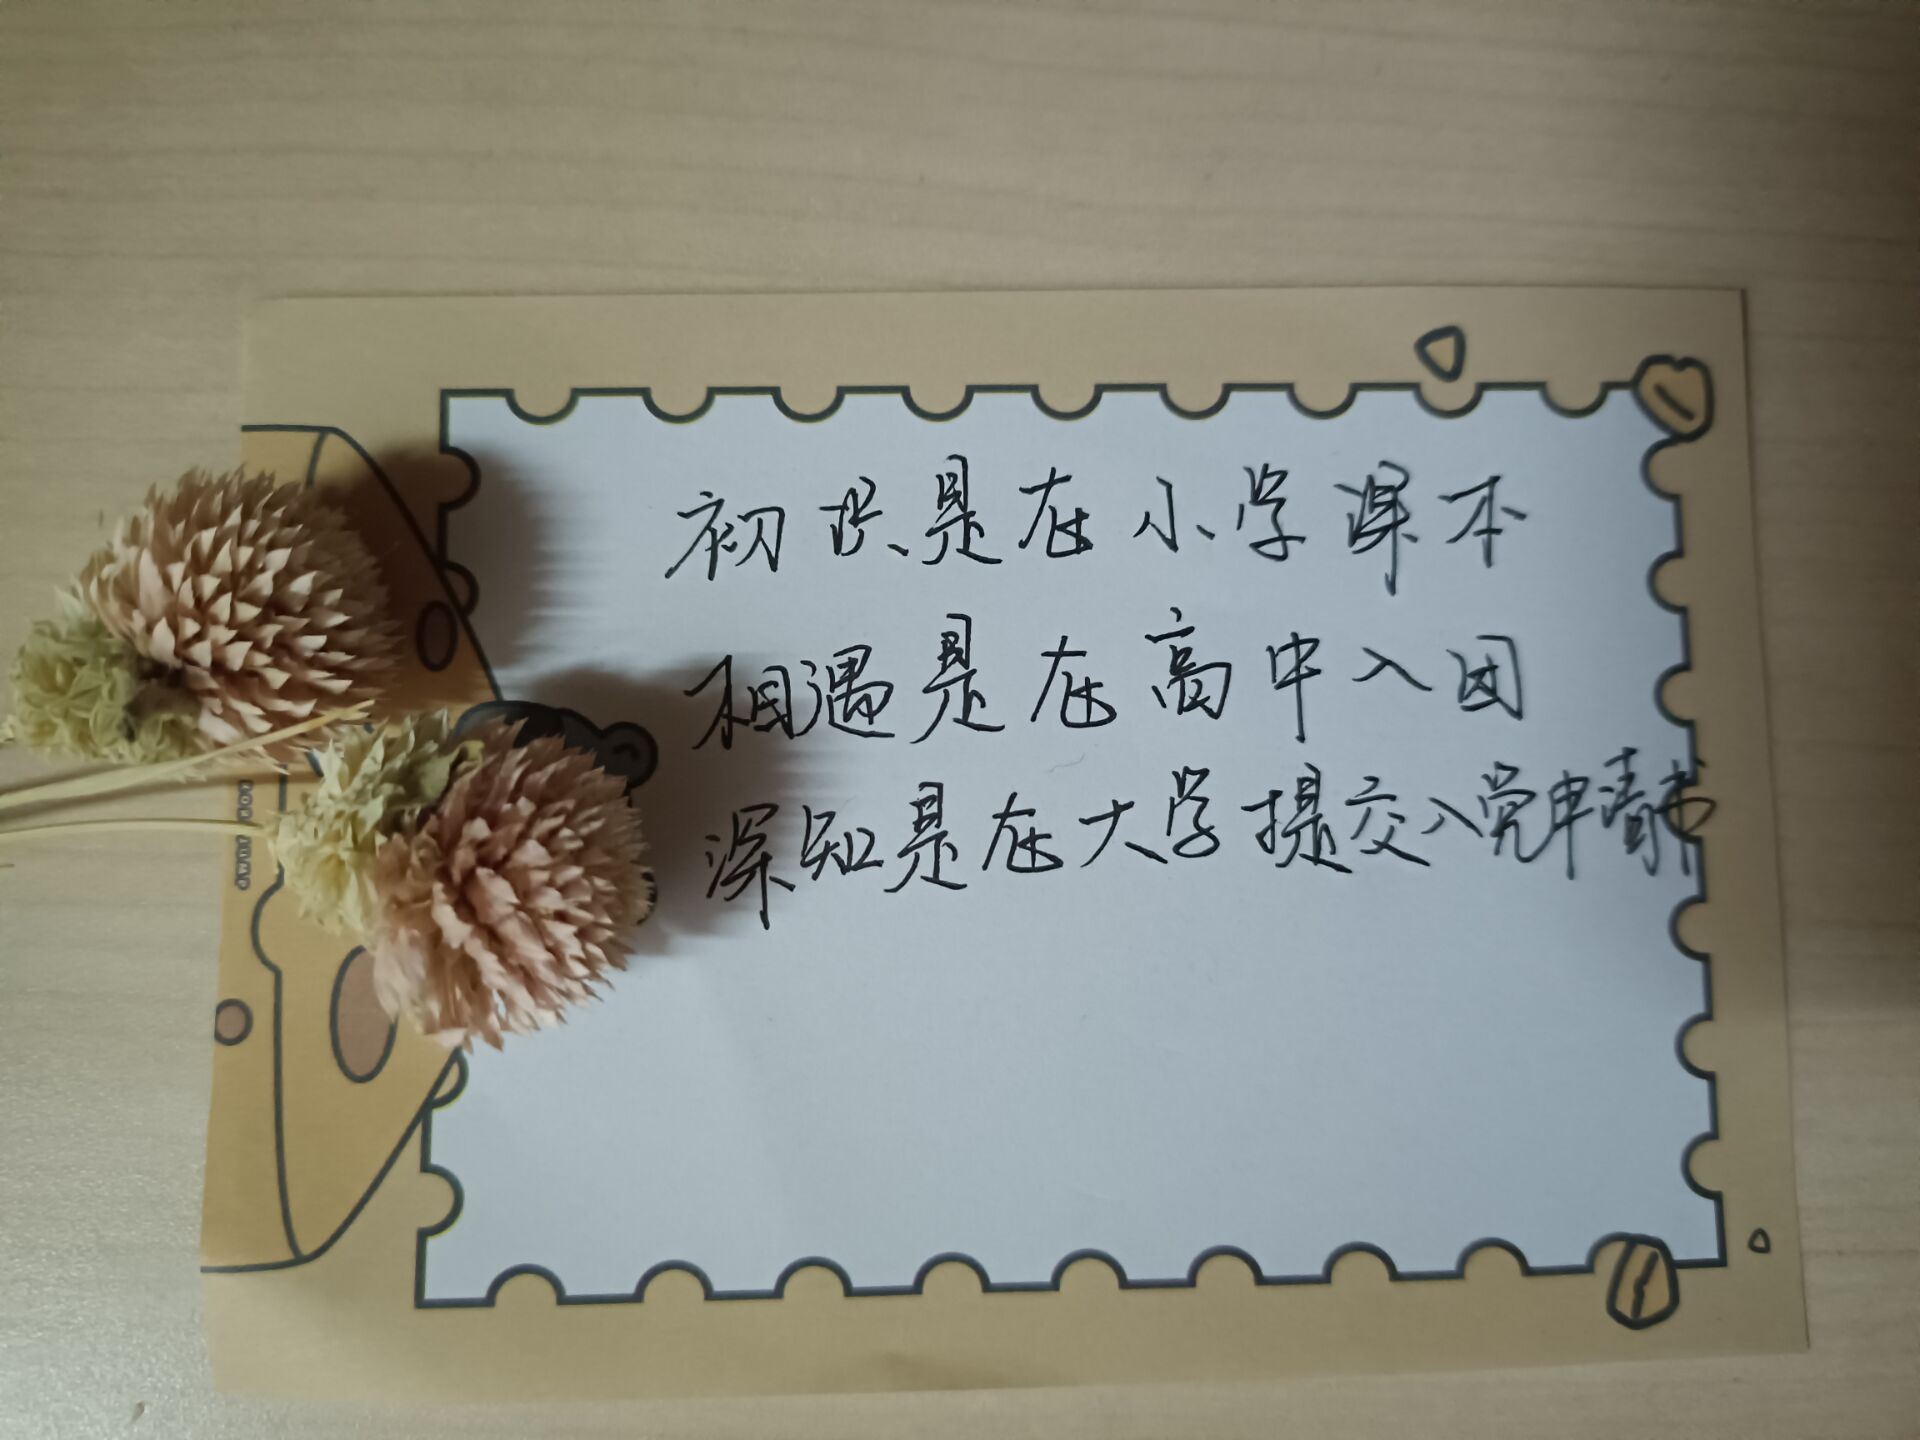 初识是在小学课本
相遇是在高中入团
深知是在大学提交入党申请书